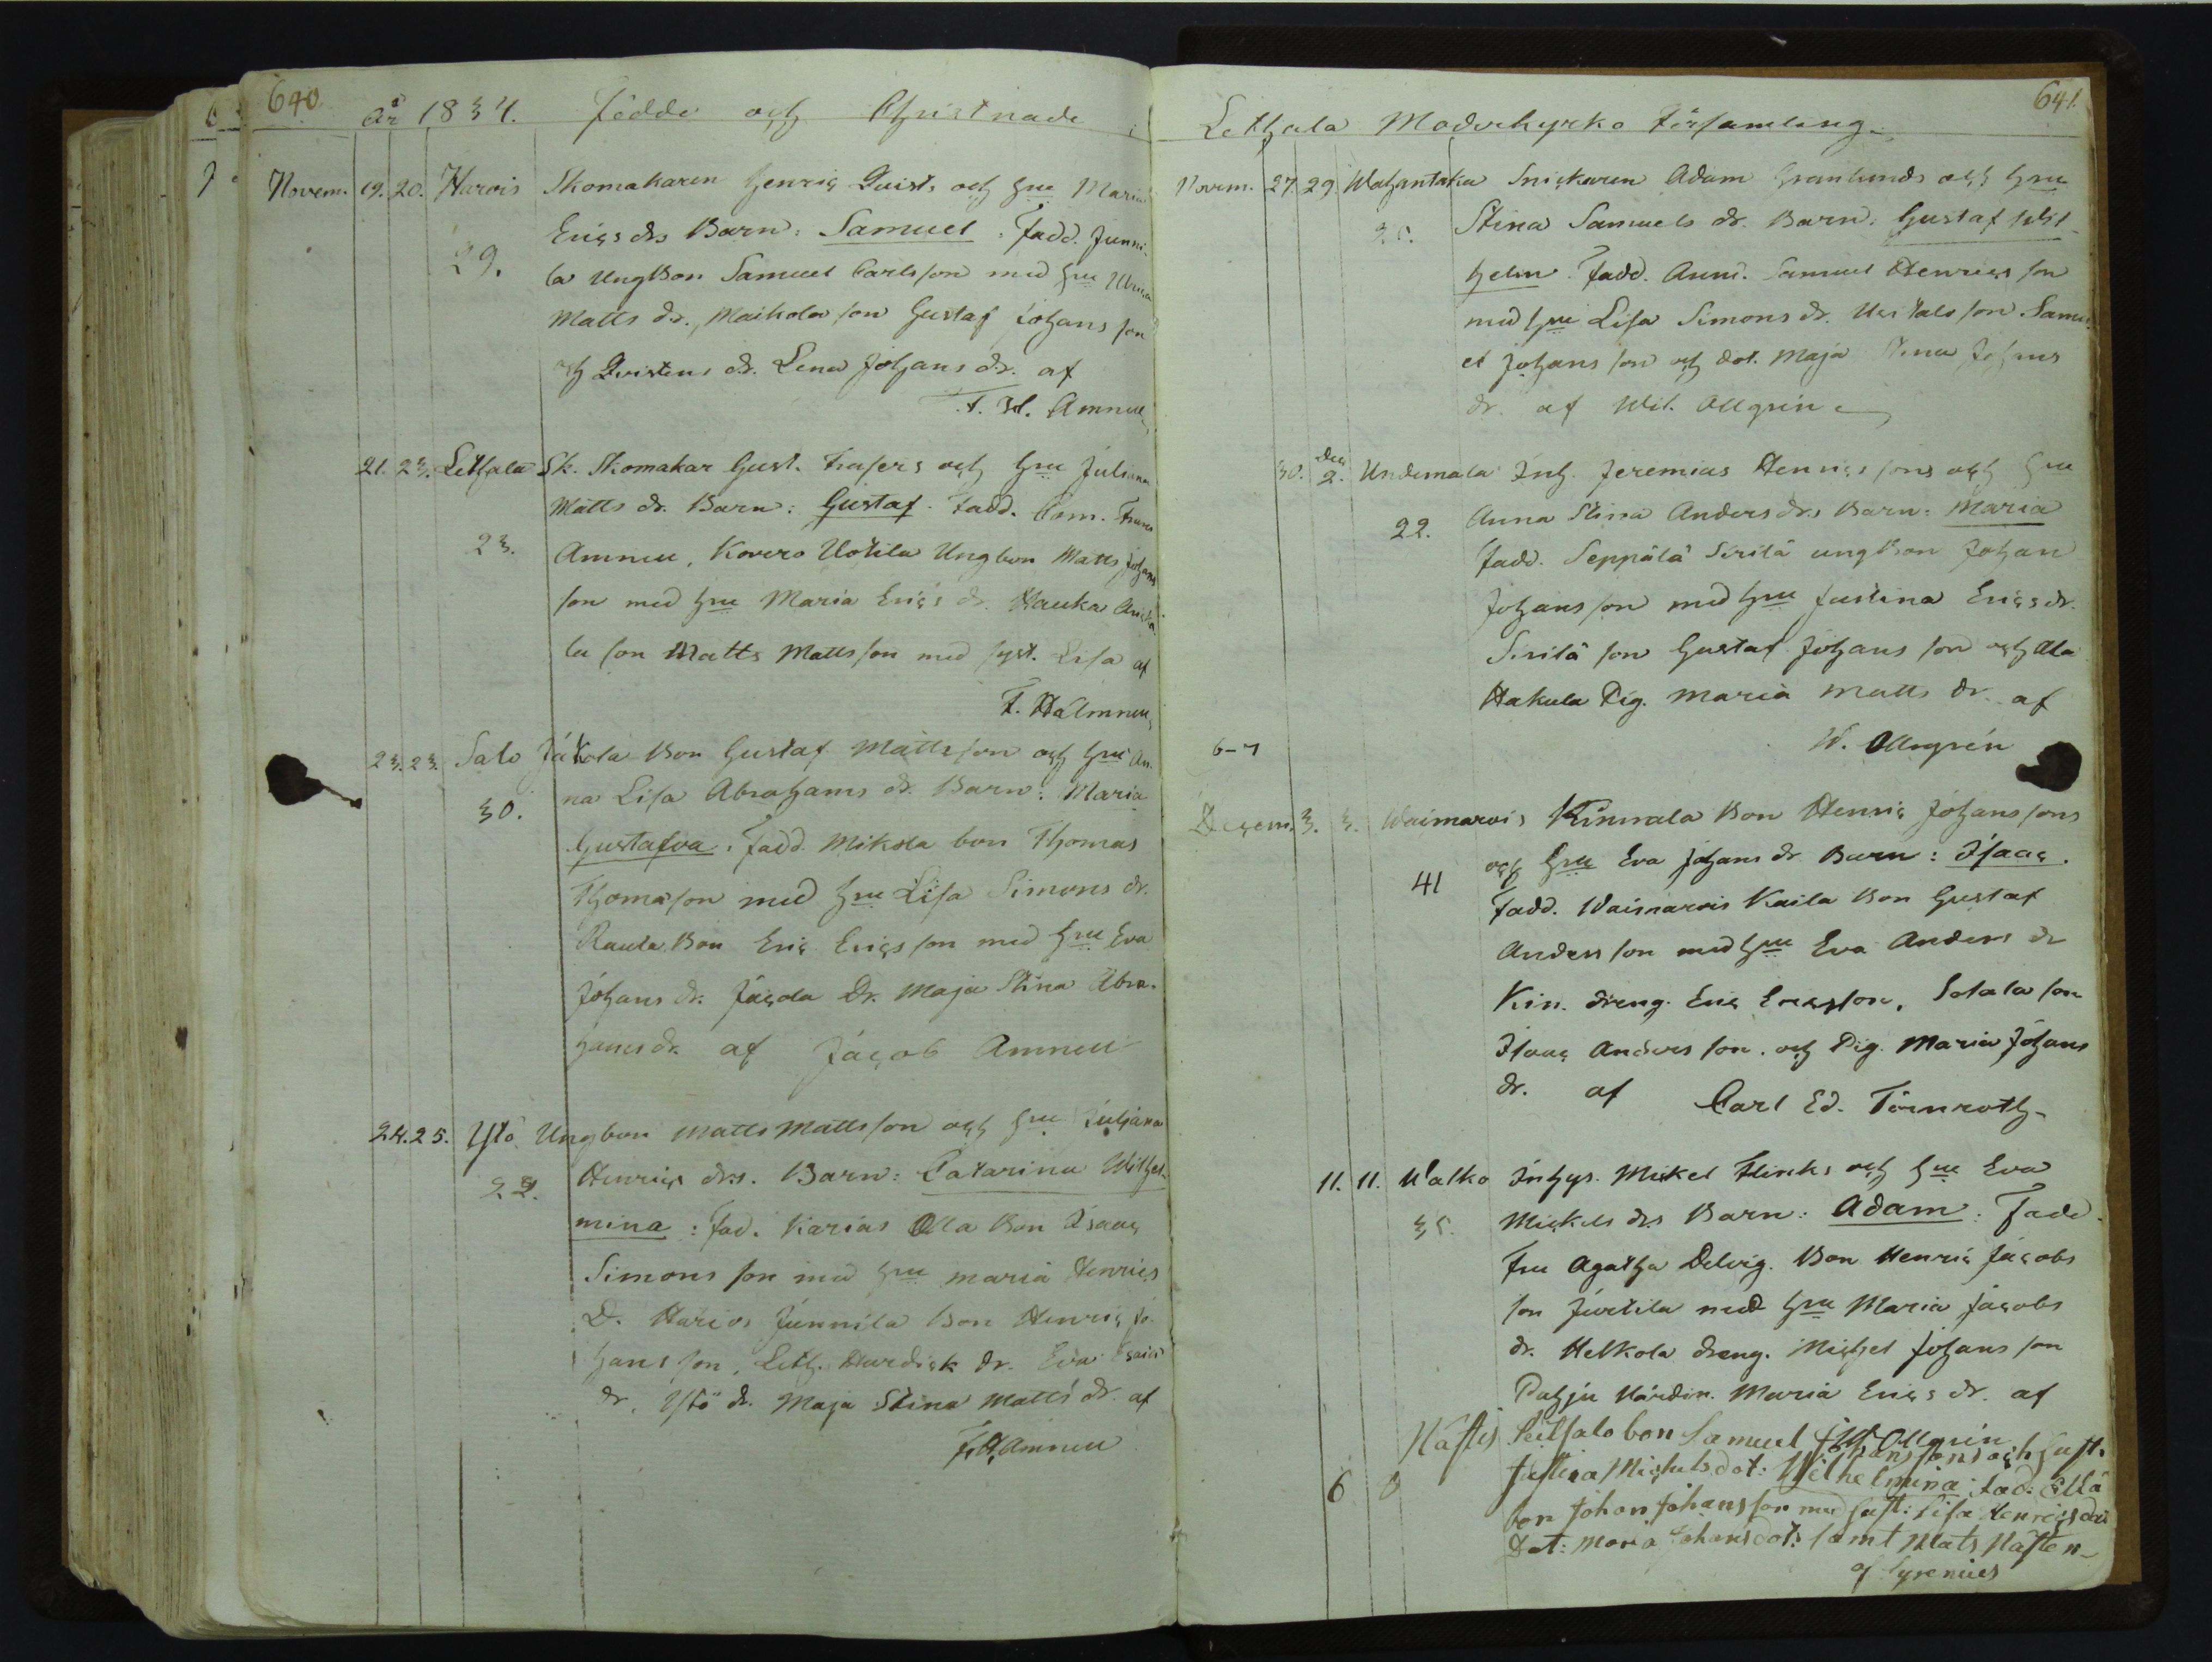 640.
År 1834. Födde och Christnade
Novem. 19. 20. Harvis Skomakaren Henric Quists och Hru Maria
Erics drs Barn: Samuel. Fadd. Junni-
29.
la UngBon Samuel Carlsson med Hru Ulrica
Matts dr., Maihola son Gustaf Johans son
och Qvistens dr. Lena Johans dr. af
F. H. Amnell
21. 23. Lethala Sk. Skomakar Gust. och Hru Juliana
Matts dr. Barn: Gustaf. Fadd. Com.
23.
Amnell, Korero Uotila Ungbon Matts Johans
son med Hru Maria Erics dr. Hauka
la son Matts Mattsson med syst. Lisa af
F. H. Amnell
23. 23. Salo Jakola Bon Gustaf Mattsson och Hru An-
na Lisa Abrahams dr. Barn: Maria
30.
Gustafva. Fadd. Mikola bon Thomas
Thomasson med Hru Lisa Simons dr.
Rauta Bon Eric Ericsson med Hru Eva
Johans dr. Jacola Dr. Maja Stina Abra-
hams dr. af Jacob Amnell
24. 25. Yltö Ungbon Matts Mattsson och Hru Juliana
Henrics drs. Barn: Catarina Wilhel-
mina: Fad. Karias Olla Bon Isaac
Simons son med Hru Maria Henrics
D. Harvis Junnila Bon Henric Jo-
hans son, Leth. Hurdick dr. Eva Esaias
dr. Yltö dr. Maja Stina Matts dr. af
F. H. Amnell
641.
Lethala Moderkyrko Församling
Novem. 27. 29. Wahantaka Snickaren Adam Granlunds och Hru
Stina Samuels dr. Barn: Gustaf Wil-
helm. Fadd. Samuel Henrics son
med Hru Lisa Simons dr. Uusitalo son Samu-
el Johans son och dot. Maja Stina Johans
dr. af Wil. Ollgrén
30. Dec 2. Undemala Inh. Jeremias Henrics sons och Hru
Anna Stina Anders drs Barn: Maria
22.
Fadd. Seppälä Sirilä ungBon Johan
Johansson med Hru Justina Erics dr.
Sirilä son Gustaf Johans son och Ala
Hakula Pig. Maria Matts dr. af
W. Ollgrén
6-7
Decem. 3. 3. Waimarois Kinnala Bon Henric Johanssons
och Hru Eva Johans dr. Barn: Isaac.
41
Fadd. Waimarois Kaila Bon Gustaf
Andersson med Hru Eva Anders dr
Kin. dreng. Eric Ericsson, Sotala son
Isaac Anders son. och Pig. Maria Johans
dr. af Carl Ed. Törnroth
11. 11. Walko Inhys. Mickel Flinks och Hru Eva
Mickels drs Barn: Adam: Fadd.
35.
Fru Agatha Delvig. Bon Henric Jacobs
son Jurtila med Hru Maria Jacobs
dr. Helkola dreng. Michel Johans son
Pahju Värdin. Maria Erics dr. af
W. Ollgrén
Nästis Peltsalo bon Samuel Johanssons och Hust.
Justina Michelsdot: Wilhelmina: fad: Ollä
6 8
bon Johan Johansson med hust: Lisa Henricsdot
Dot: Maria Johansdot: samt Mats Nästen-
af Cyrenius